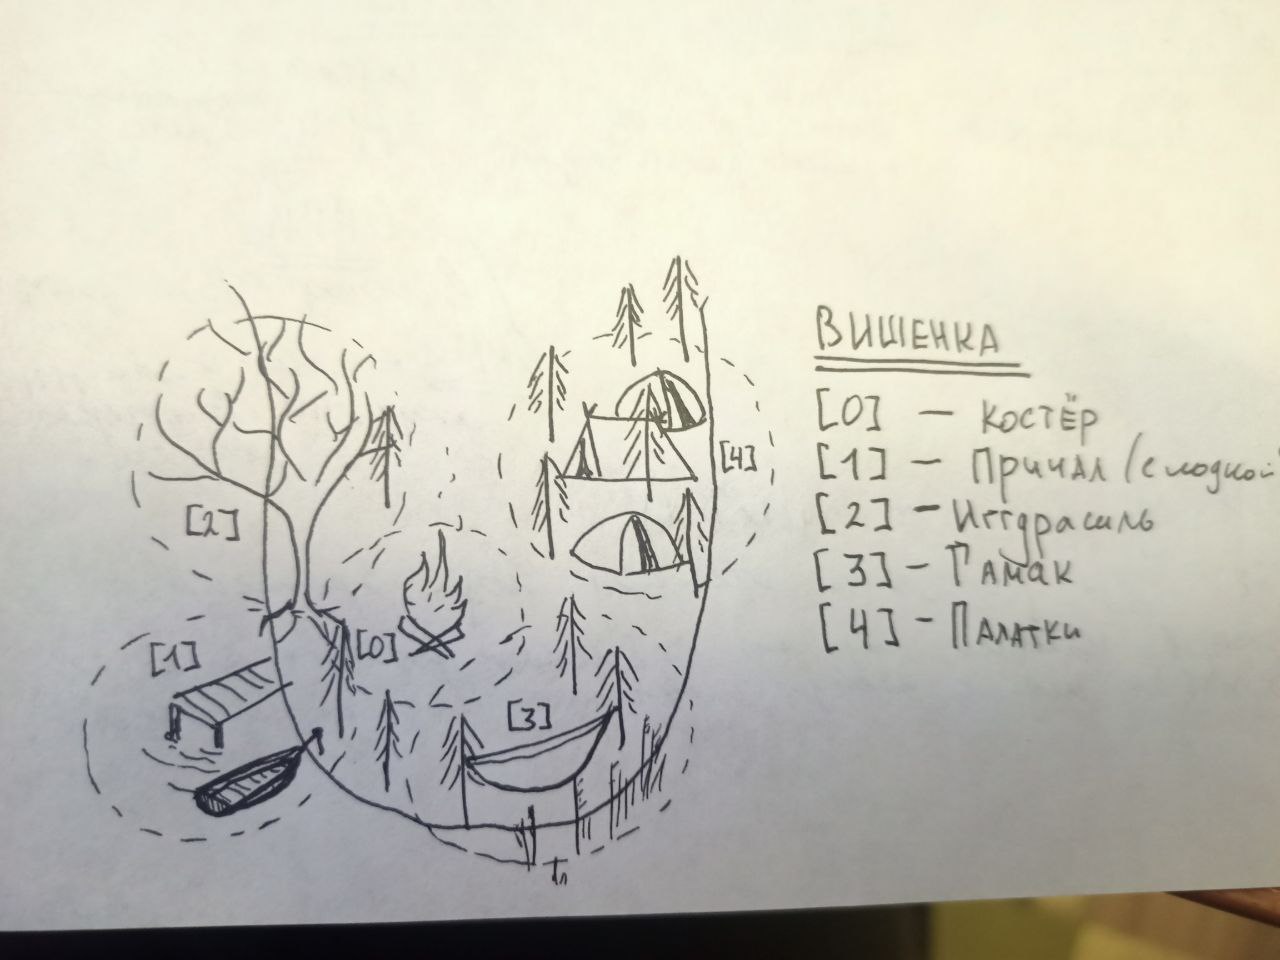 [2]
[4]
[1]
[0]
[3]
ВИШЕНКА
[0] — КОСТЁР
[1] — ПРИЧАЛ (с лодкой
[2] — Иггдрасиль
[3] — ГАМАК
[4] — ПАЛАТКИ